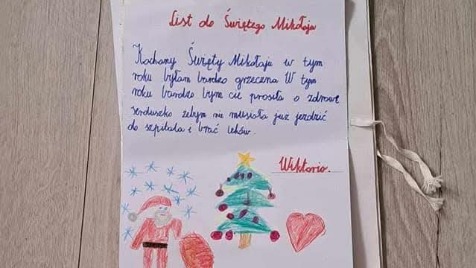 List do Świętego Mikołaja
Kochany Święty Mikołaju w tym
roku byłam bardzo grzeczna W tym
roku bardzo bym cię prosiła o zdrowe
serduszko żebym nie musiała już jeździć
do szpitala i brać leków.
Wiktoria.